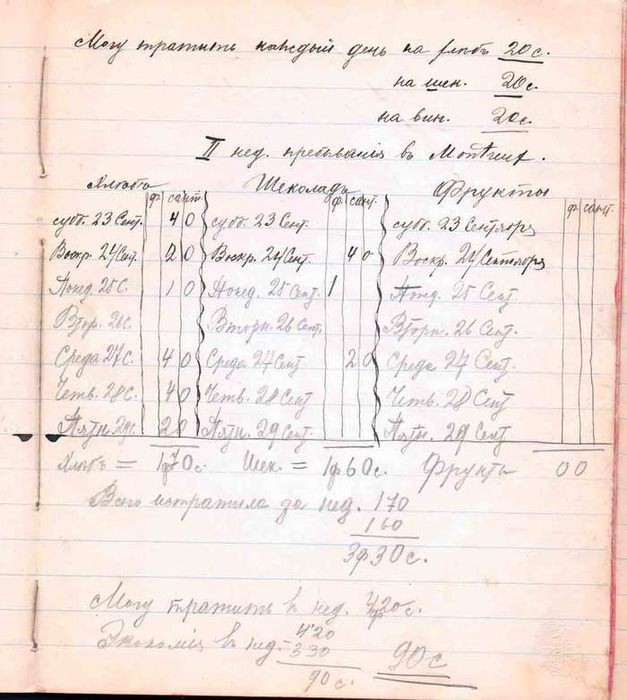 Могу тратить каждый день на хлѣбъ 20 с.
на шек. 20 с.
на вин. 20 с.
II нед. пребыванія въ Montreux.
Хлѣбъ Шеколадъ Фрукты
ф. сант. ф. сант. ф. сант.
субб. 23 Сент. 40 субб. 23 Сент. субб. 23 Сентября
Воскр. 24 Сент. 20 Воскр. 24 Сент. 40 Воскр. 24 Сентября
Понед. 25 С. 10 Понед. 25 Сент. 1 Понед. 25 Сент.
Втор. 26 С. Вторн. 26 Сент. Вторн. 26 Сент.
Среда 27 С. 40 Среда 27 Сент. 20 Среда 27 Сент.
Четв. 28 С. 40 Четв. 28 Сент. Четв. 28 Сент.
Пятн. 29 С. 20 Пятн. 29 Сент. Пятн. 29 Сент.
Хлѣбъ = 1ф70с. Шек. = 1ф60с. Фрукты 00
Всего истратила за нед. 170
160
3ф30с.
Могу тратить въ нед. 4ф20с.
Экономія въ нед. - 420
330
90с. 90с